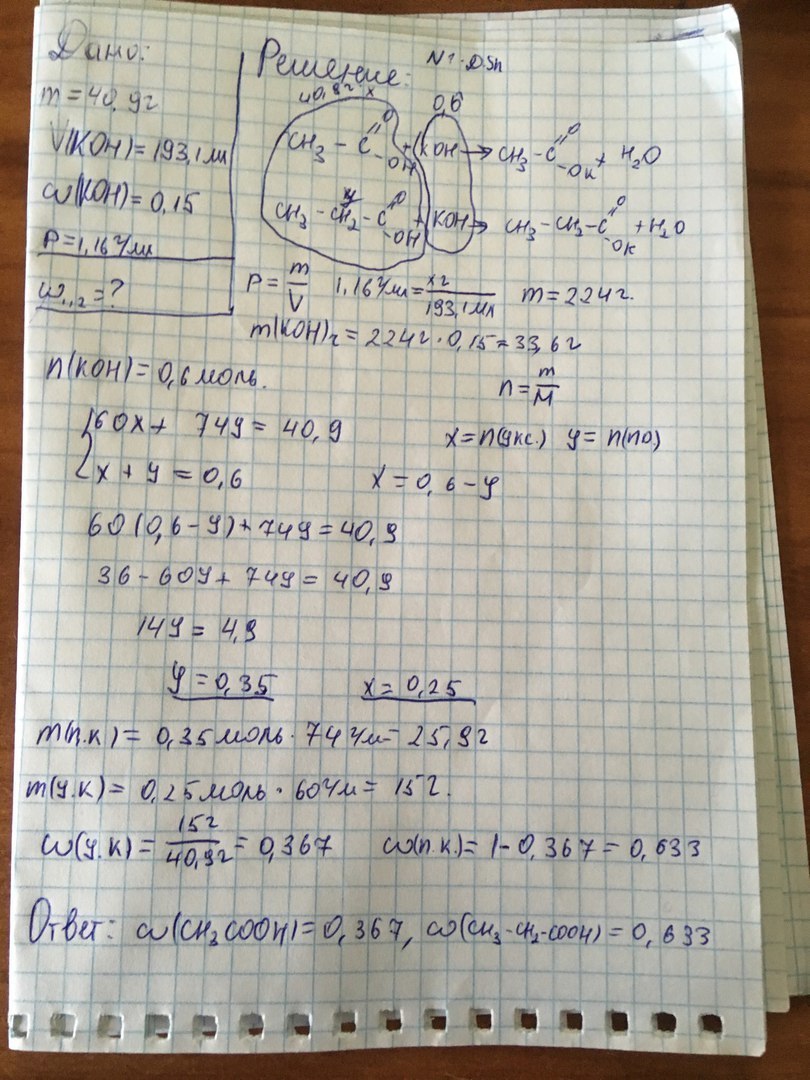 Дано:
m = 40,9г
V(KOH) = 193,1 мл
ω(KOH) = 0,15
P = 1,16 г/мл
ω₁,₂ = ?
Решение:
40,9г x
0,6
CH₃ – C =O –OH + KOH → CH₃ – C =O –OK + H₂O
y
CH₃ – CH₂ – C =O –OH + KOH → CH₃ – CH₂ – C =O –OK + H₂O
P = m/V 1,16 г/мл = xг/193,1 мл m = 224г.
m(KOH)г = 224г · 0,15 = 33,6г
n(KOH) = 0,6 моль. n = m/M
{60x + 74y = 40,9 x = n(укс.) y = n(по.)
x + y = 0,6 x = 0,6 – y
60(0,6 – y) + 74y = 40,9
36 – 60y + 74y = 40,9
14y = 4,9
y = 0,35 x = 0,25
m(п.к) = 0,35 моль · 74 г/м = 25,9г
m(у.к) = 0,25 моль · 60 г/м = 15г.
ω(у.к) = 15г/40,9г = 0,367 ω(п.к.) = 1 – 0,367 = 0,633
Ответ: ω(CH₃COOH) = 0,367, ω(CH₃-CH₂-COOH) = 0,633